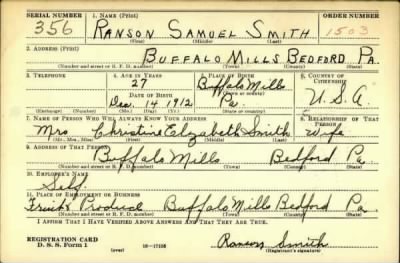 SERIAL NUMBER 1. NAME (Print) ORDER NUMBER
356 RANSON SAMUEL SMITH 1503
(First) (Middle) (Last)
2. ADDRESS (Print)
BUFFALO MILLS BEDFORD PA.
(Number and street or R. F. D. number) (Town) (County) (State)
3. TELEPHONE 4. AGE IN YEARS 5. PLACE OF BIRTH 6. COUNTRY OF CITIZENSHIP
27 Buffalo Mills
DATE OF BIRTH (Town or county)
Dec. 14 1912 Pa U.S.A.
(Exchange) (Number) (Mo.) (Day) (Yr.) (State or country)
7. NAME OF PERSON WHO WILL ALWAYS KNOW YOUR ADDRESS 8. RELATIONSHIP OF THAT PERSON
Mrs Christine Elizabeth Smith wife
(Mr., Mrs., Miss) (First) (Middle) (Last)
9. ADDRESS OF THAT PERSON
Buffalo Mills Bedford Pa.
(Number and street or R. F. D. number) (Town) (County) (State)
10. EMPLOYER'S NAME
Self
11. PLACE OF EMPLOYMENT OR BUSINESS
Fruit & Produce Buffalo Mills Bedford Pa.
(Number and street or R. F. D. number) (Town) (County) (State)
I AFFIRM THAT I HAVE VERIFIED ABOVE ANSWERS AND THAT THEY ARE TRUE.
REGISTRATION CARD
D. S. S. Form 1 (over) 16-17105 Ranson Smith
(Registrant's signature)